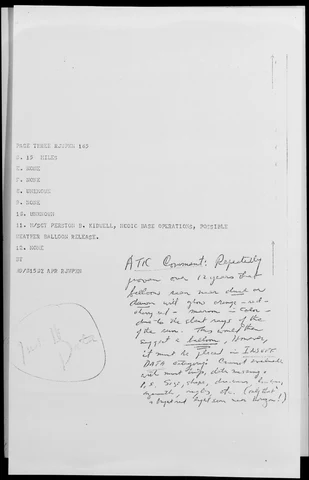 PAGE THREE RJWFEM 163
D. 15 MILES
E. NONE
F. NONE
G. UNKNOWN
H. NONE
10. UNKNOWN
11. M/SGT PRESTON D. KIDWELL, BASE OPERATIONS, POSSIBLE
WEATHER BALLOON RELEASE.
12. NONE
BT
APR RJWFEM
ATIC Comment: Repeatedly
proven over 12 years that
balloons seen near dusk or
dawn will glow orange - red -
cherry red - maroon in color
due to the slant rays of the
of the sun. This would then
suggest a balloon, However,
it must be placed in INSUFF
DATA category. Cannot evaluate
with most data missing.
i.e. size, shape, 
azimuth, etc. (only that
a bright red light seen near horizon!)